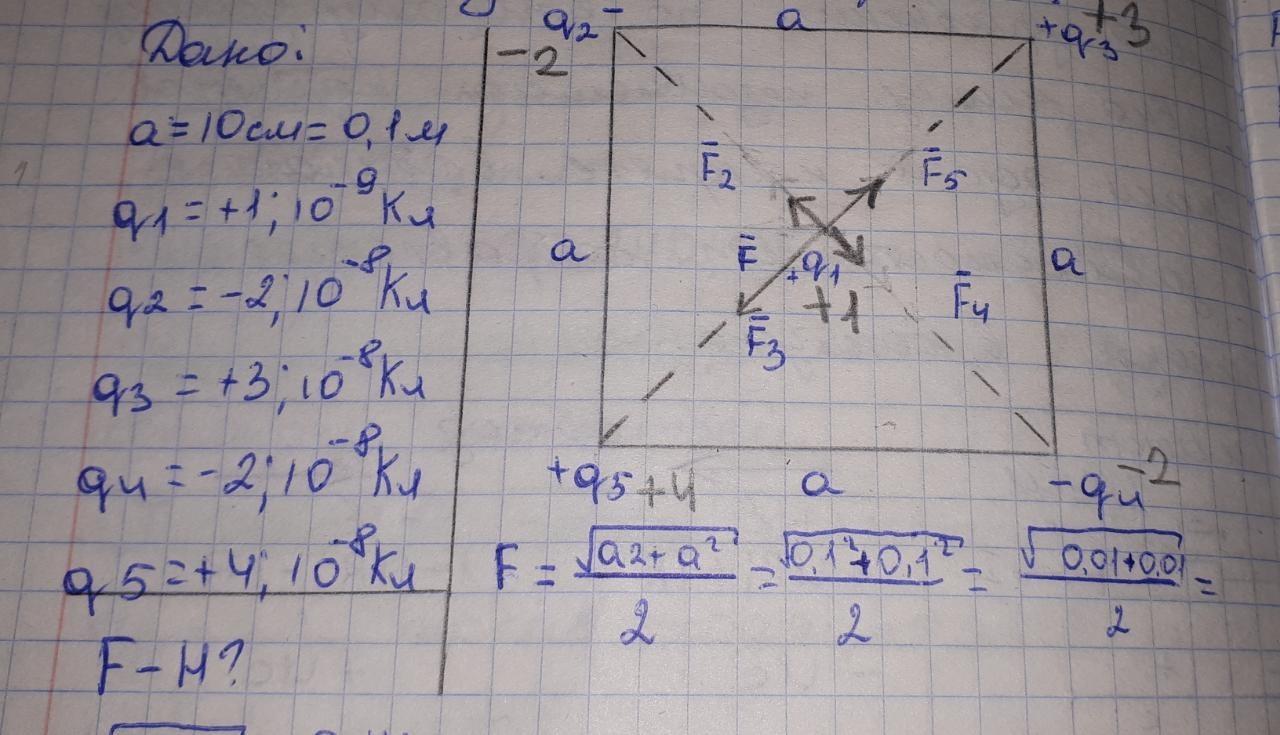 Дано:
a = 10 см = 0,1 м
q1 = +1; 10⁻⁹ Кл
q2 = -2; 10⁻⁸ Кл
q3 = +3; 10⁻⁸ Кл
q4 = -2; 10⁻⁸ Кл
q5 = +4; 10⁻⁸ Кл
F – Н?
q2 -
-2
a
+q3 +3
F̄2
F̄5
a
F̄
+q1
+1
a
F̄3
F̄4
+q5 +4
a
-q4 -2
F = √(a2 + a²) / 2 = √(0,1² + 0,1²) / 2 = √(0,01 + 0,01) / 2 =